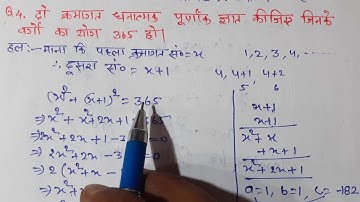 Q4. दो क्रमागत धनात्मक पूर्णांक ज्ञात कीजिए जिनके
वर्गों का योग 365 हो।
हल:- माना कि पहला क्रमागत सं०= x
∴ दूसरा सं० = x+1
1, 2, 3, 4, ....
4, 4+1, 4+2
5, 6
(x)² + (x+1)² = 365
⇒ x² + x² + 2x + 1
⇒ 2x² + 2x + 1 - 3
⇒ 2x² + 2x - 3
⇒ 2(x² + x
x+1
x+1
x² + x
+x+1
a=1, b=1, c= -182